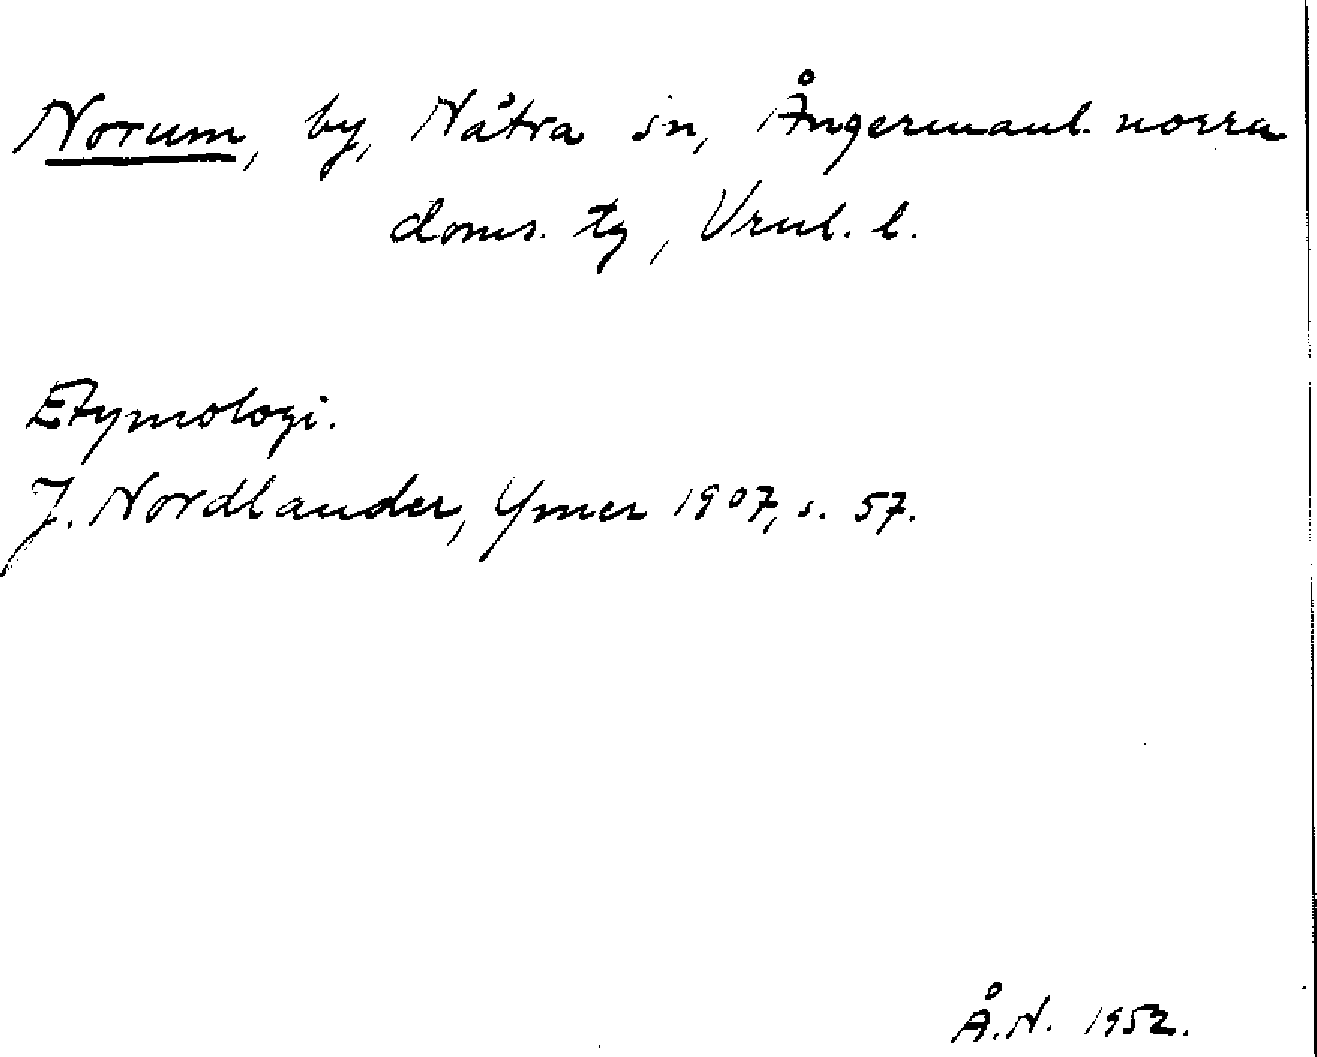 Norum, by, Nätra sn, Ångermanl. norra
doms. tg, Vrnl. l.
Etymologi.
J. Nordlander, Ymer 1907, s. 57.
Å.N. 1952.